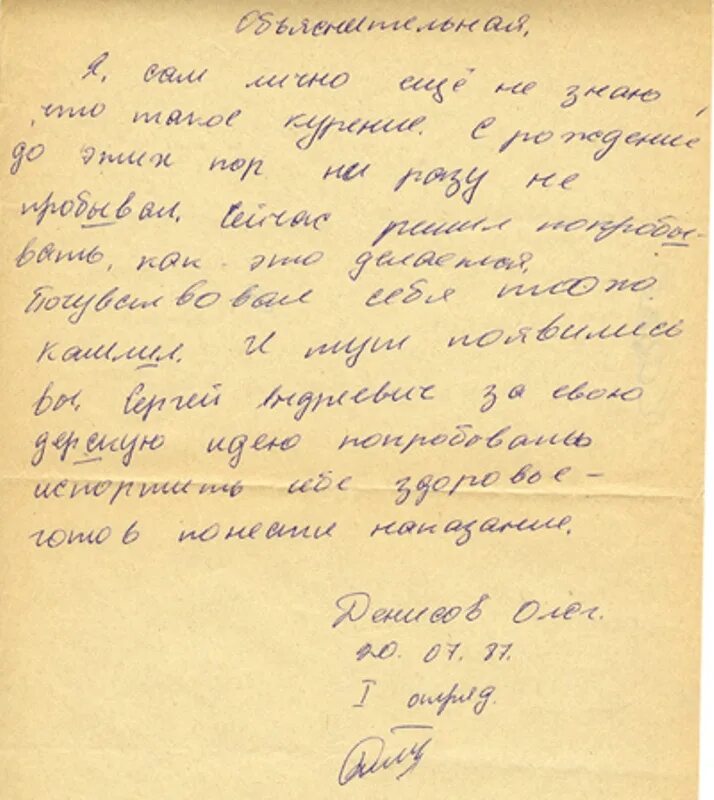 Объяснительная.
Я, сам лично ещё не знаю,
что такое курение. С рождение
до этих пор ни разу не
пробывал. Сейчас решил попробы-
вать, как это делается.
Почувствовал себя плохо.
кашлил. И тут появились
вы. Сергей Андреевич за свою
дерскую идею попробовать
испортить себе здоровье -
готов понести наказание.
Денисов Олег.
20. 07. 87.
I отряд.